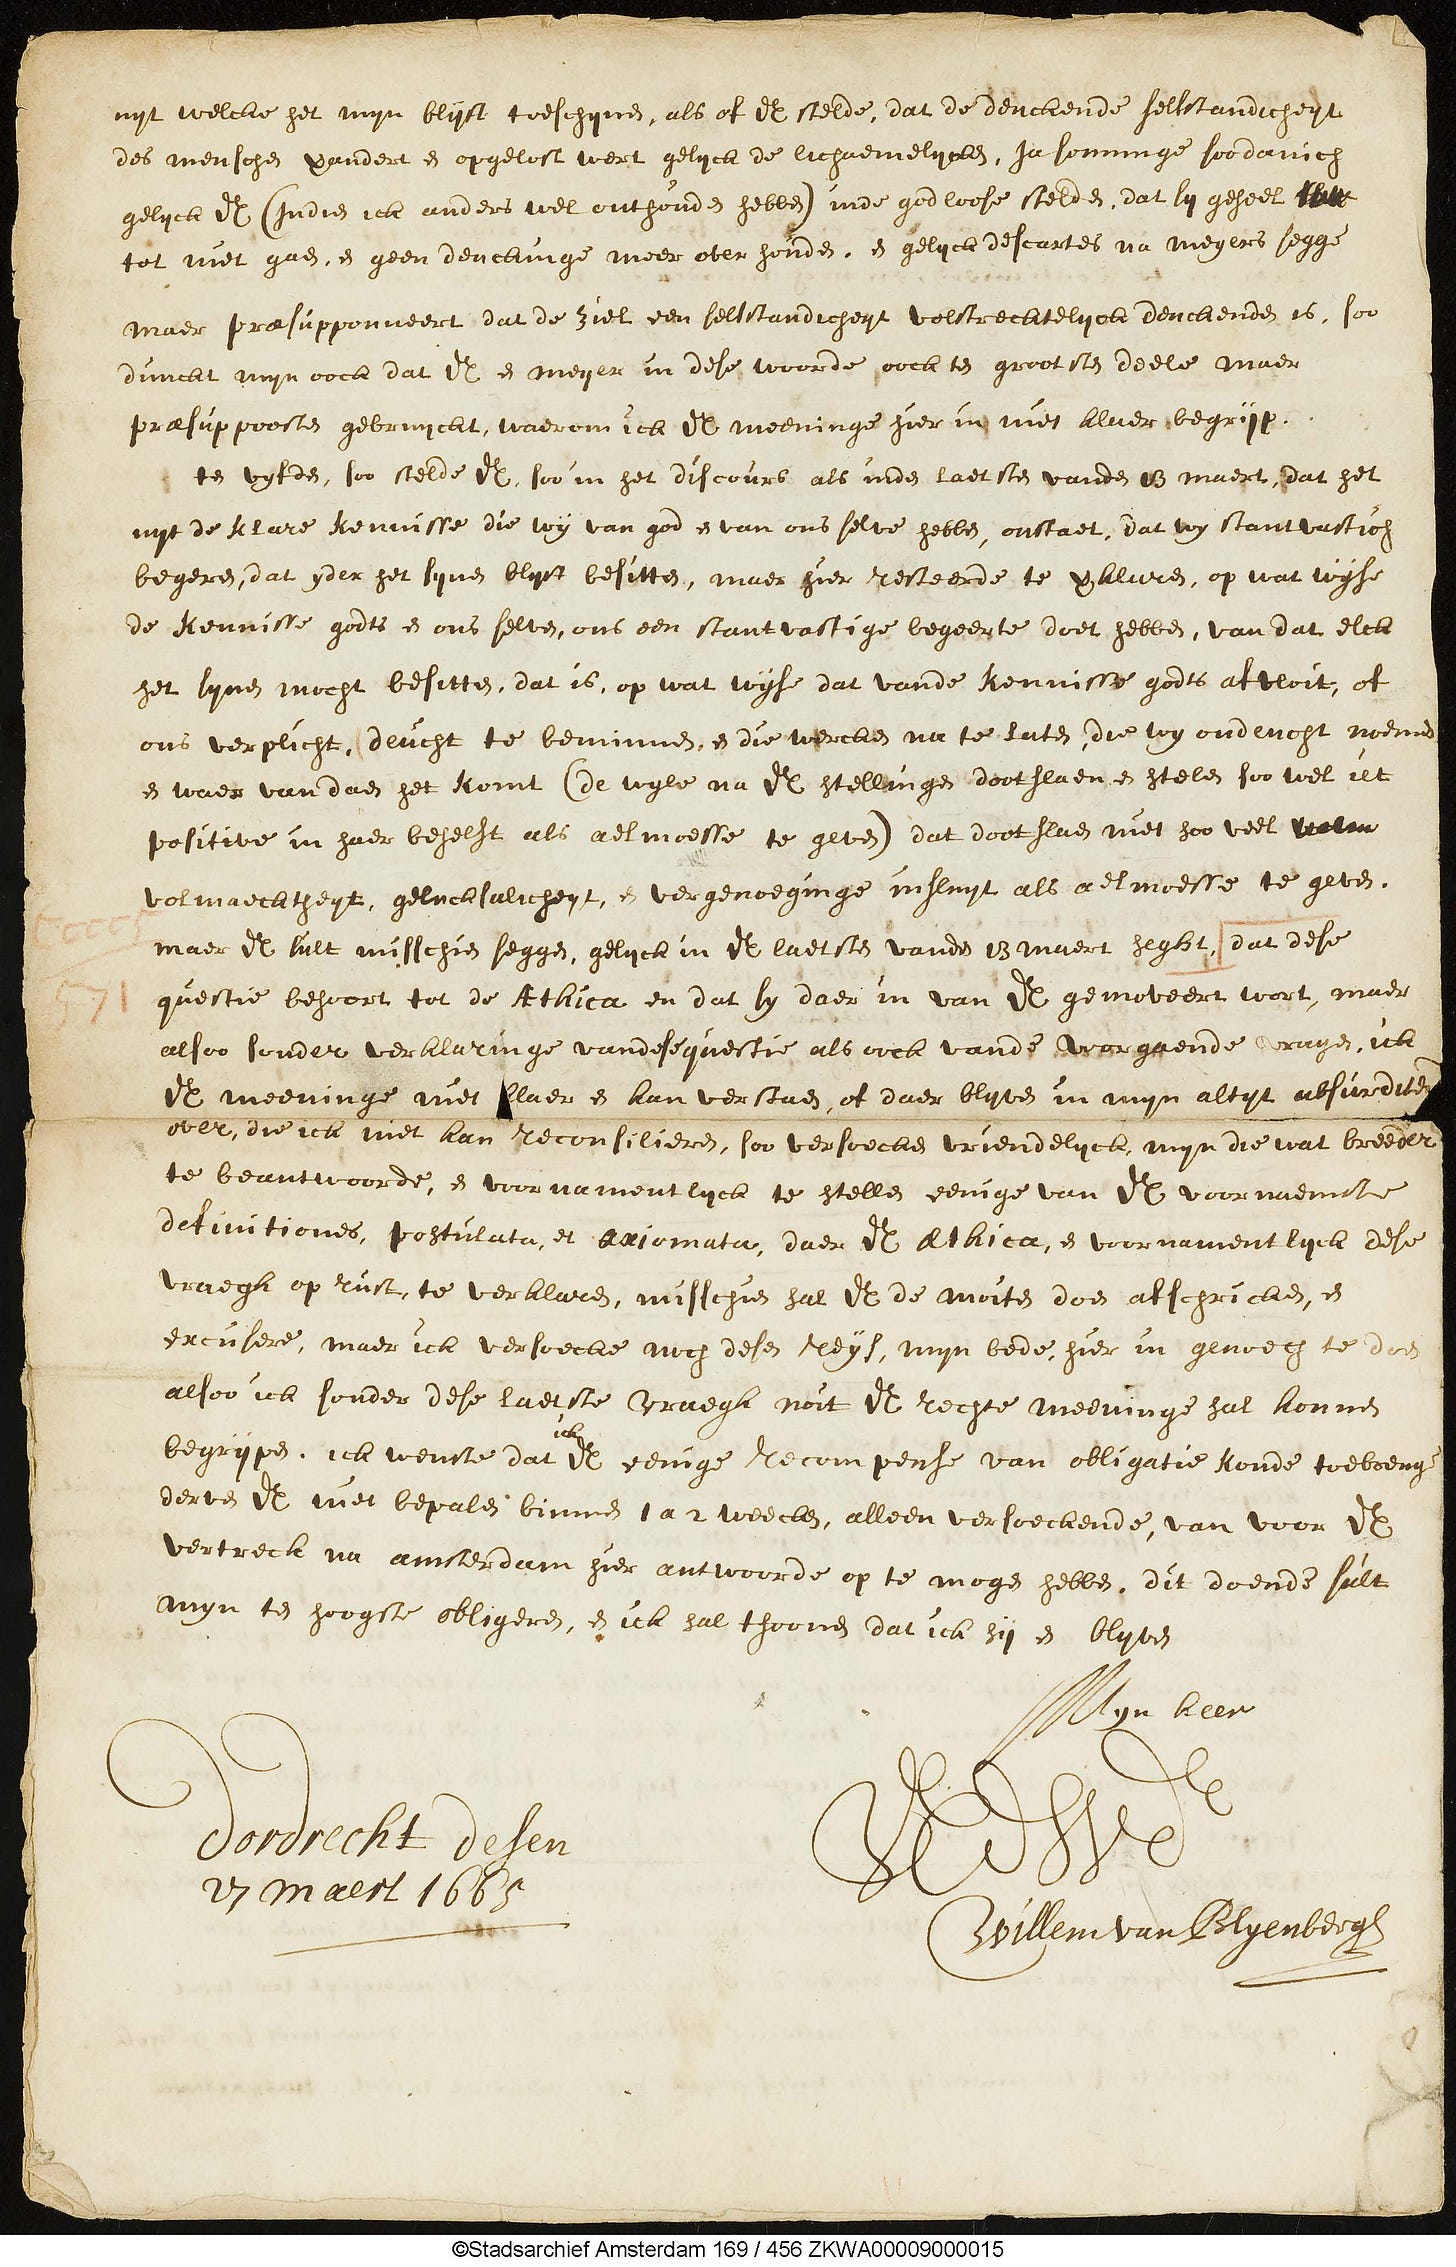 uyt welcke het myn blijft toeschynen, als of UE stelde, dat de denckende selfstandicheyt
des menschen verandert en opgelost wert gelyck de lichaemelycken, Ja sommige soodanich
gelyck UE (Indien ick anders wel onthouden hebbe) inde godloose stelden, dat sy geheel
tot niet gaen, en geen denckinge meer over houden. en gelyck descartes na meyers segge
maer præsupponneert dat de ziel een selfstandicheyt volstrecktelyck denckende is, soo
dunckt myn oock dat UE en meyer in dese woorde oock ten grootsten deele maer
præsuppoosten gebruyckt, waerom ick UE meeninge hier in niet klaer begrijp.
ten vyfden, soo stelde UE, soo in het discours als inden laetsten vanden 13 maert, dat het
uyt de klare kennisse die wij van god en van ons selve hebben, onstaet, dat wy stantvastich
begeren, dat yder het syne blyft besitten, maer hier resteerde te verklaren, op wat wijse
de kennisse godts en ons selven, ons een stantvastige begeerte doet hebben, van dat elck
het syne mocht besitten, dat is, op wat wijse dat vande kennisse godts afvloit, of
ons verplicht, deucht te beminnen, en die wercken na te laten, die wy ondeucht noemen
en waer van daen het komt (de wyle na UE stellingen dootslaen en stelen soo wel iet
positive in haer behelst als aelmoesse te geven) dat dootslaen niet soo veel
volmaecktheyt, gelucksalicheyt, en vergenoeginge insluyt als aelmoesse te geven.
maer UE sult misschien seggen, gelyck in UE laetsten vanden 13 maert seght, dat dese
questie behoort tot de Æthica en dat sy daer in van UE gemoveert wort, maer
alsoo sonder verklaringe vandese questie als oock vande voorgaende vragen, ick
UE meeninge niet klaer en kan verstaen, of daer blyven in myn altyt absurditen
over, die ick niet kan reconsilieren, soo versoecke vriendelyck, myn die wat breeder
te beantwoorde, en voornamentlyck te stellen eenige van UE voornaemste
definitiones, postulata, et axiomata, daer UE Æthica, en voornamentlyck dese
vraegh op rust, te verklaren, misschien sal UE de moiten doen afschricken, en
excusere, maer ick versoecke noch desen reys, myn bede, hier in genoech te doen
alsoo ick sonder dese laetste vraegh noit UE rechte meeninge sal konnen
begrijpen. ick wenste dat ick UE eenige recompense van obligatie konde toebrenge
derven UE niet bepalen binnen 1 a 2 weecken, alleen versoeckende, van voor UE
vertreck na amsterdam hier antwoorde op te mogen hebben. dit doende sult
myn ten hoogste obligeren, en ick sal thoonen dat ick sij en blyven
Myn heer
Dordrecht desen
27 maert 1665
Willem van Blyenbergh
©Stadsarchief Amsterdam 169 / 456 ZKWA00009000015